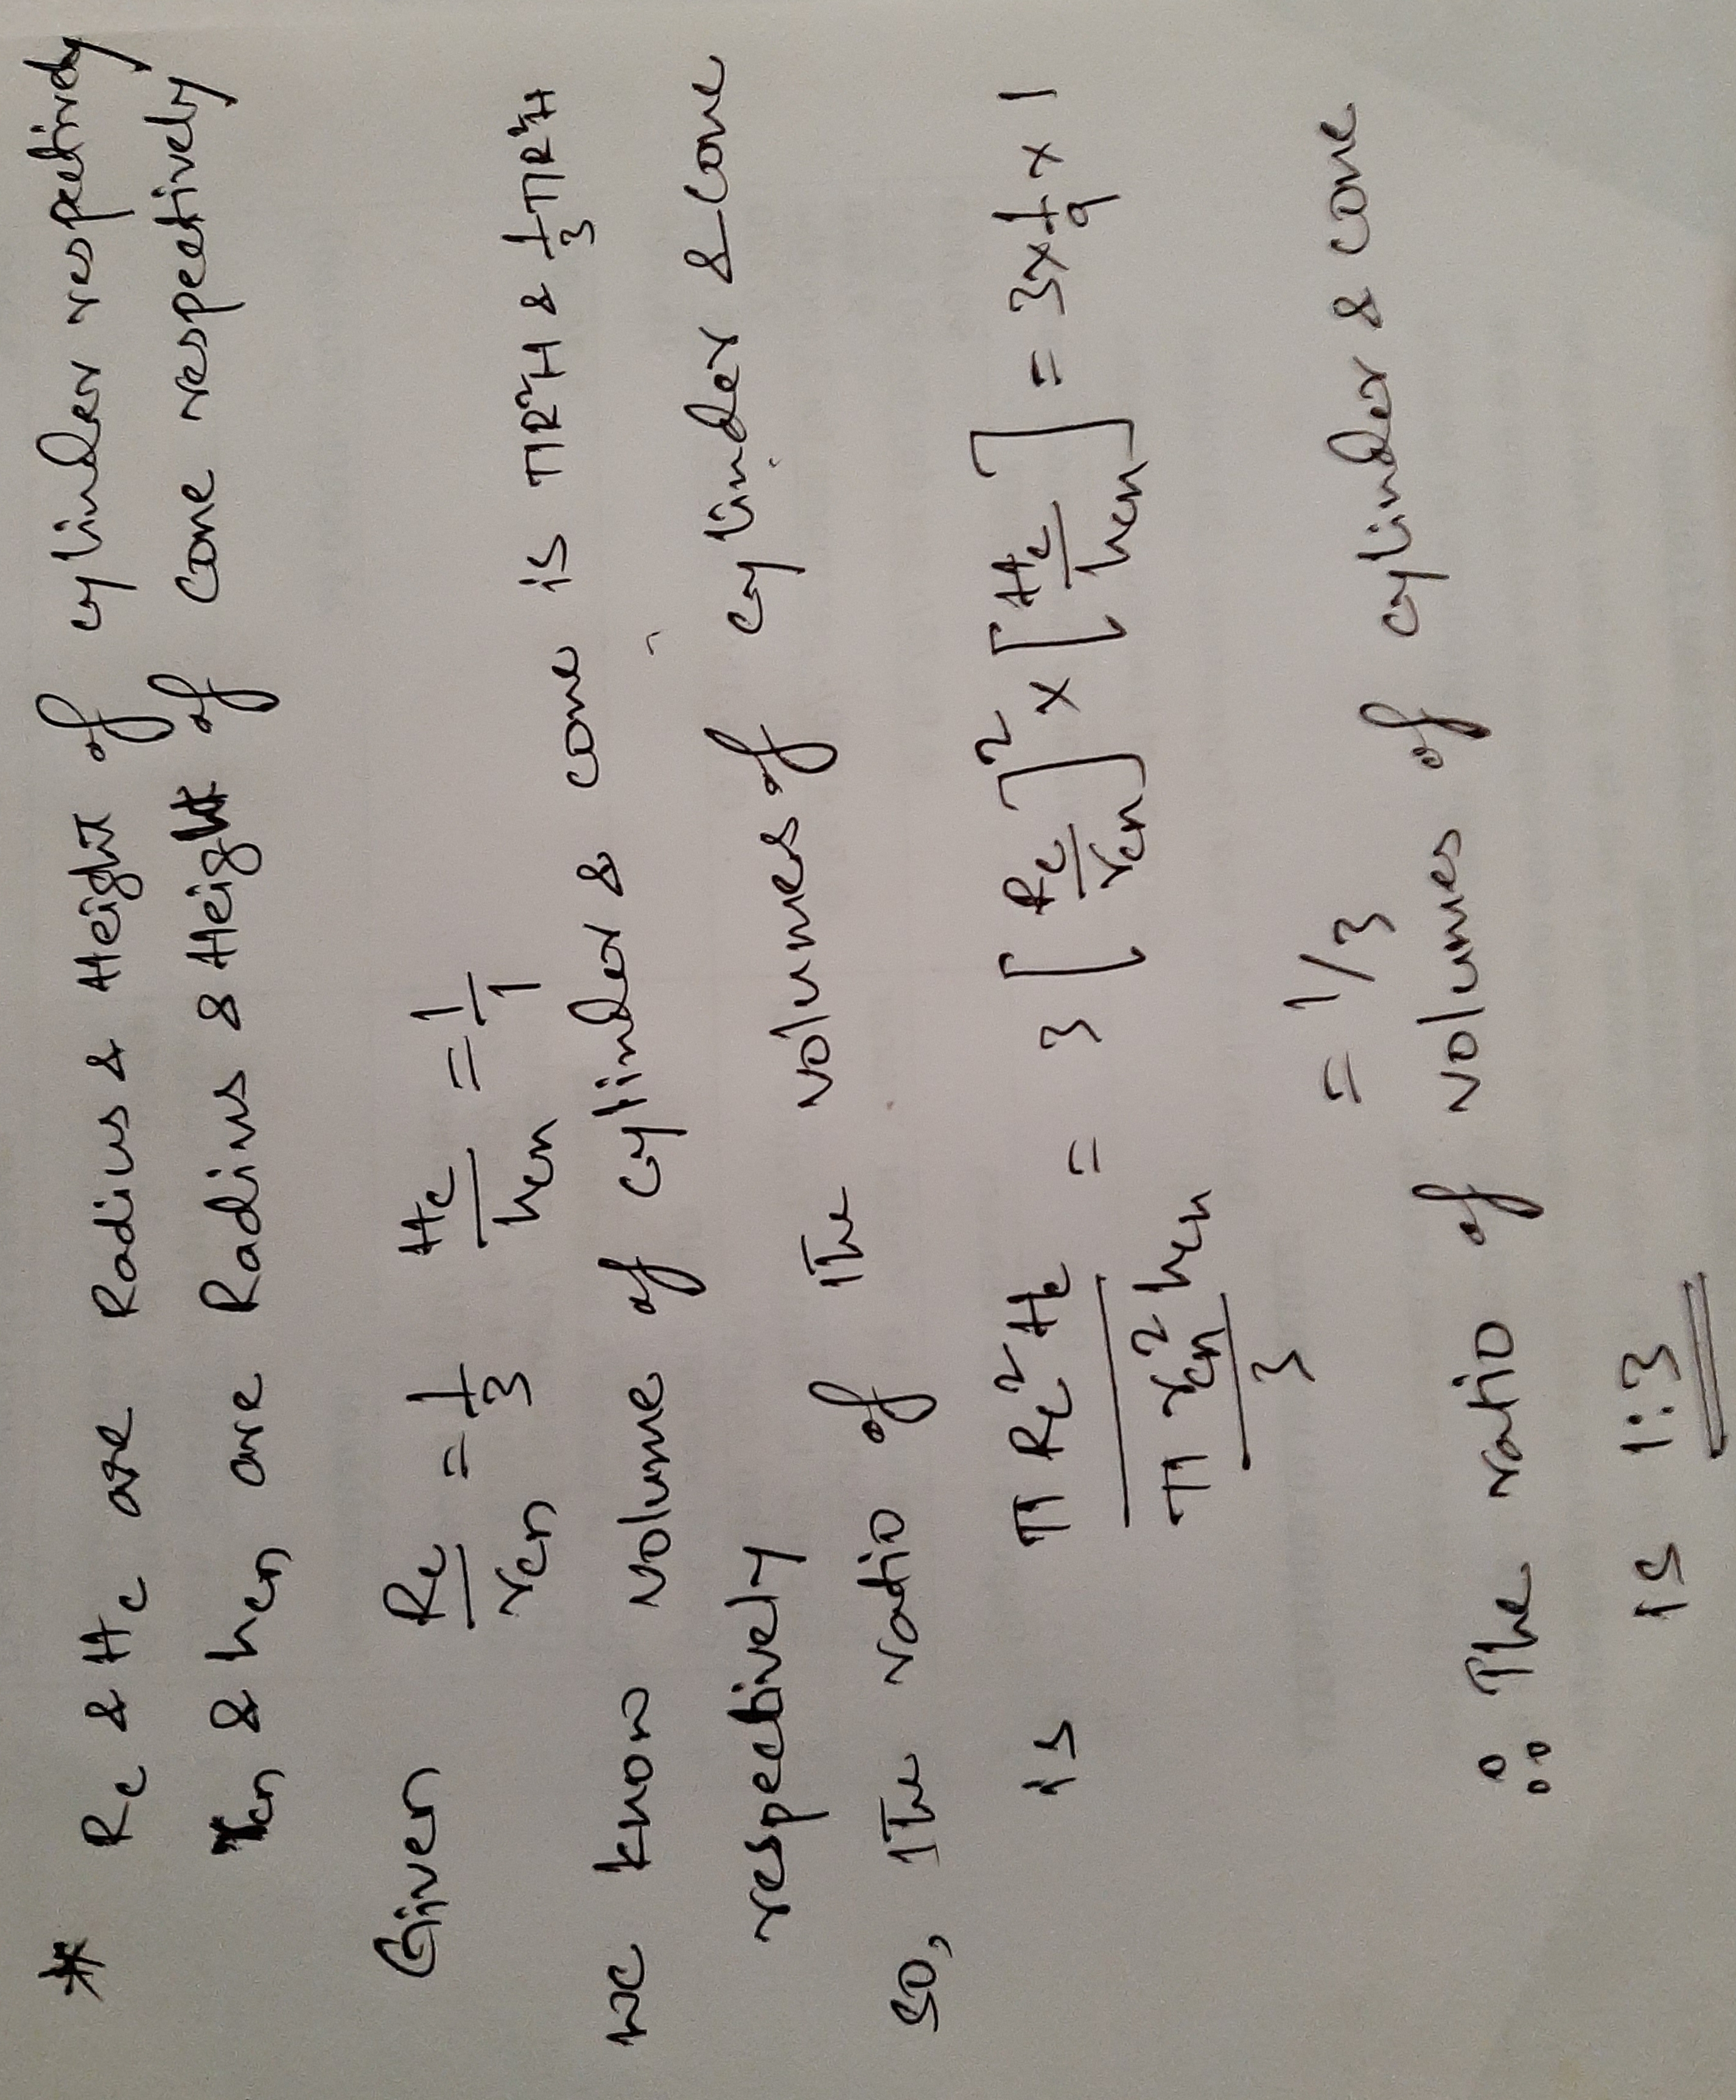 * Rc & Hc are Radius & Height of cylinder respectively
rcn & hcn are Radius & Height of cone respectively
Given Rc/rcn = 1/3 Hc/hcn = 1/1
we know volume of cylinder & cone is πR²H & 1/3 πR²H
respectively
so, The ratio of The volumes of cylinder & cone
is πRc²Hc / (πrcn²hcn/3) = 3 [Rc/rcn]² × [Hc/hcn] = 3 × 1/9 × 1
= 1/3
∴ The ratio of volumes of cylinder & cone
is 1:3